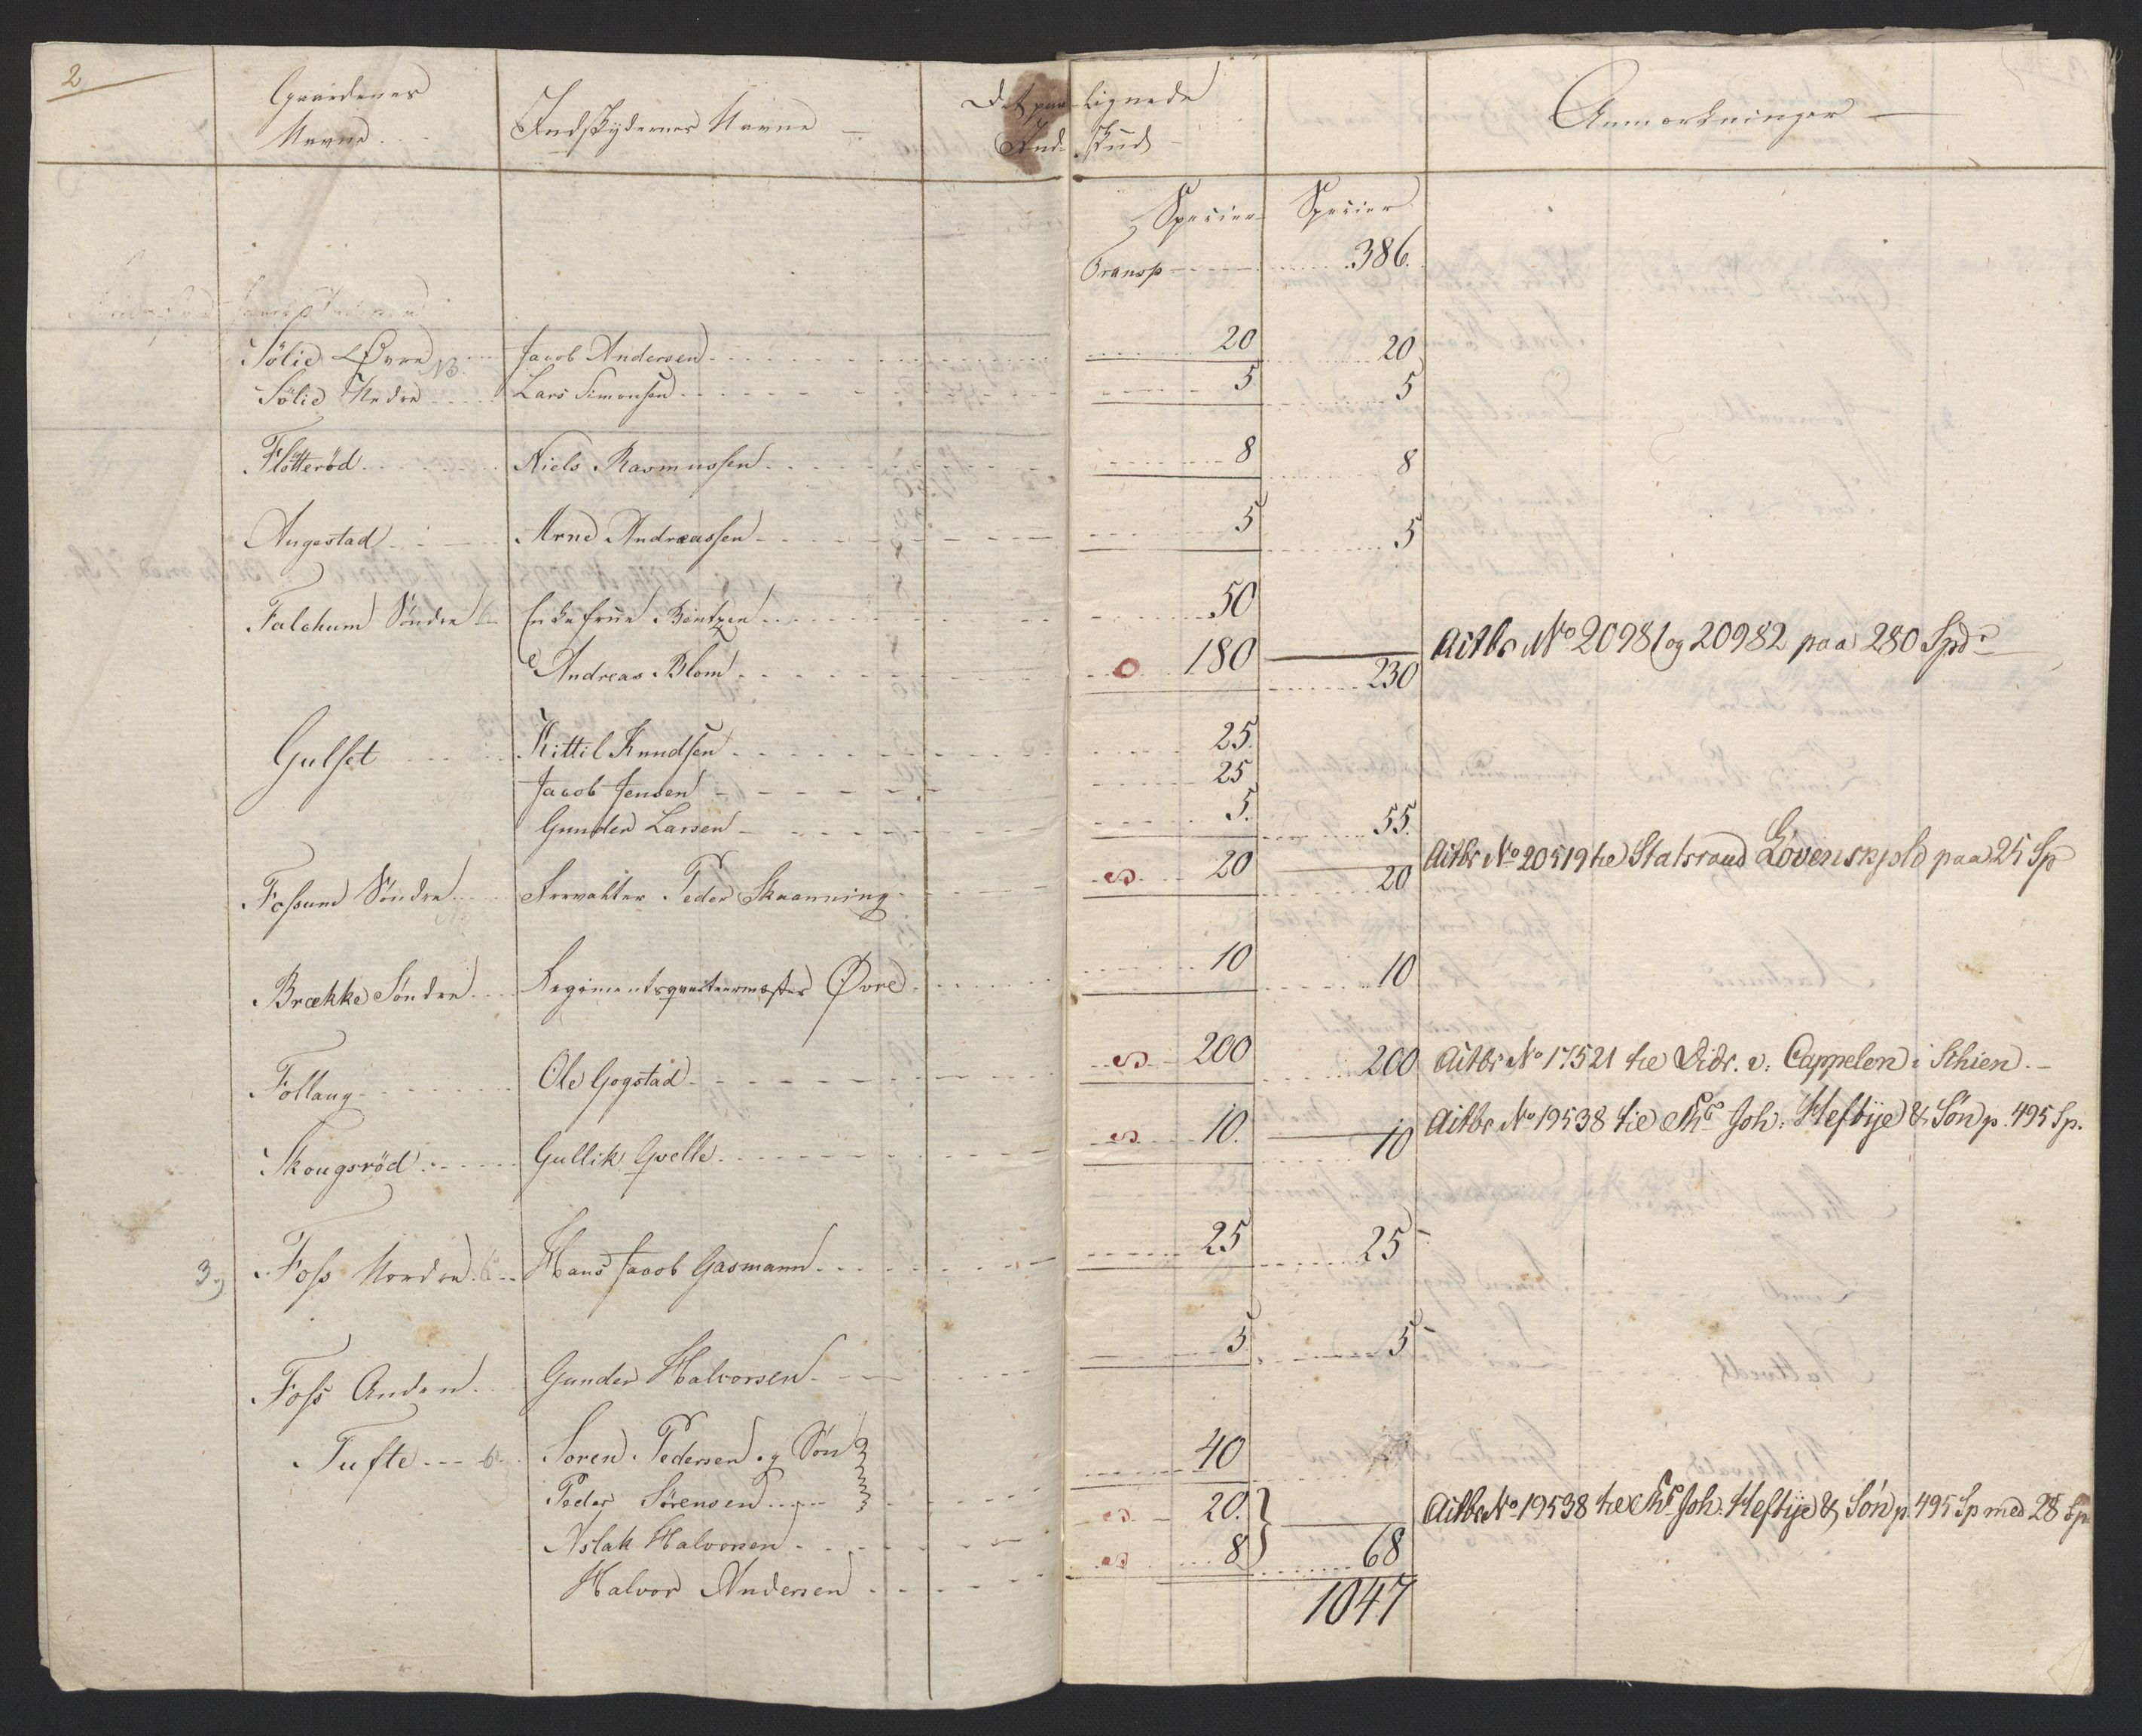 2
Gaardenes Navne.
Indskydernes Navne
Det paalignede Indskud
Anmærkninger
Specier Specier
Transp 386.
Sölie Øvre NB. Jacob Andersen 20 20
Sölie Nedre Lars Simonsen 5 5
Flötteröd Niels Rasmussen 8 8
Augestad Arne Andreassen 5 5
Falchum Söndre Enkefrue Bentzen 50
Andreas Blom 180 230 Actbr No 20981 og 20982 paa 280 Spd
Gulset Kittil Knudsen 25.
Jacob Jensen 25
Gunder Larsen 5. 55.
Fossum Söndre Forvalter Peder Skaanning 20 20 Actbr No 20519 til Statsraad Lövenskjold paa 25 Sp
Brække Söndre Regimentsqvarteermester Øvre 10 10
Follaug Ole Gogstad 200 200 Actbr No 17521 til Didr. v. Cappelen i Schien.
Skougsröd Gullik Gvelle 10. 10 Actbr No 19538 til Joh. Heftije & Sön p. 495 Sp.
3. Foss Nordre Hans Jacob Gasmann 25 25
Foss Anden Gunder Halvorsen 5 5
Tufte Soren Pedersen og Sön
Peder Sörensen 40
Aslak Halvorsen 20.
Halvor Andersen 8 68 Actbr No 19538 til Joh. Heftije & Sön p. 495 Sp med 28 Sp
1047